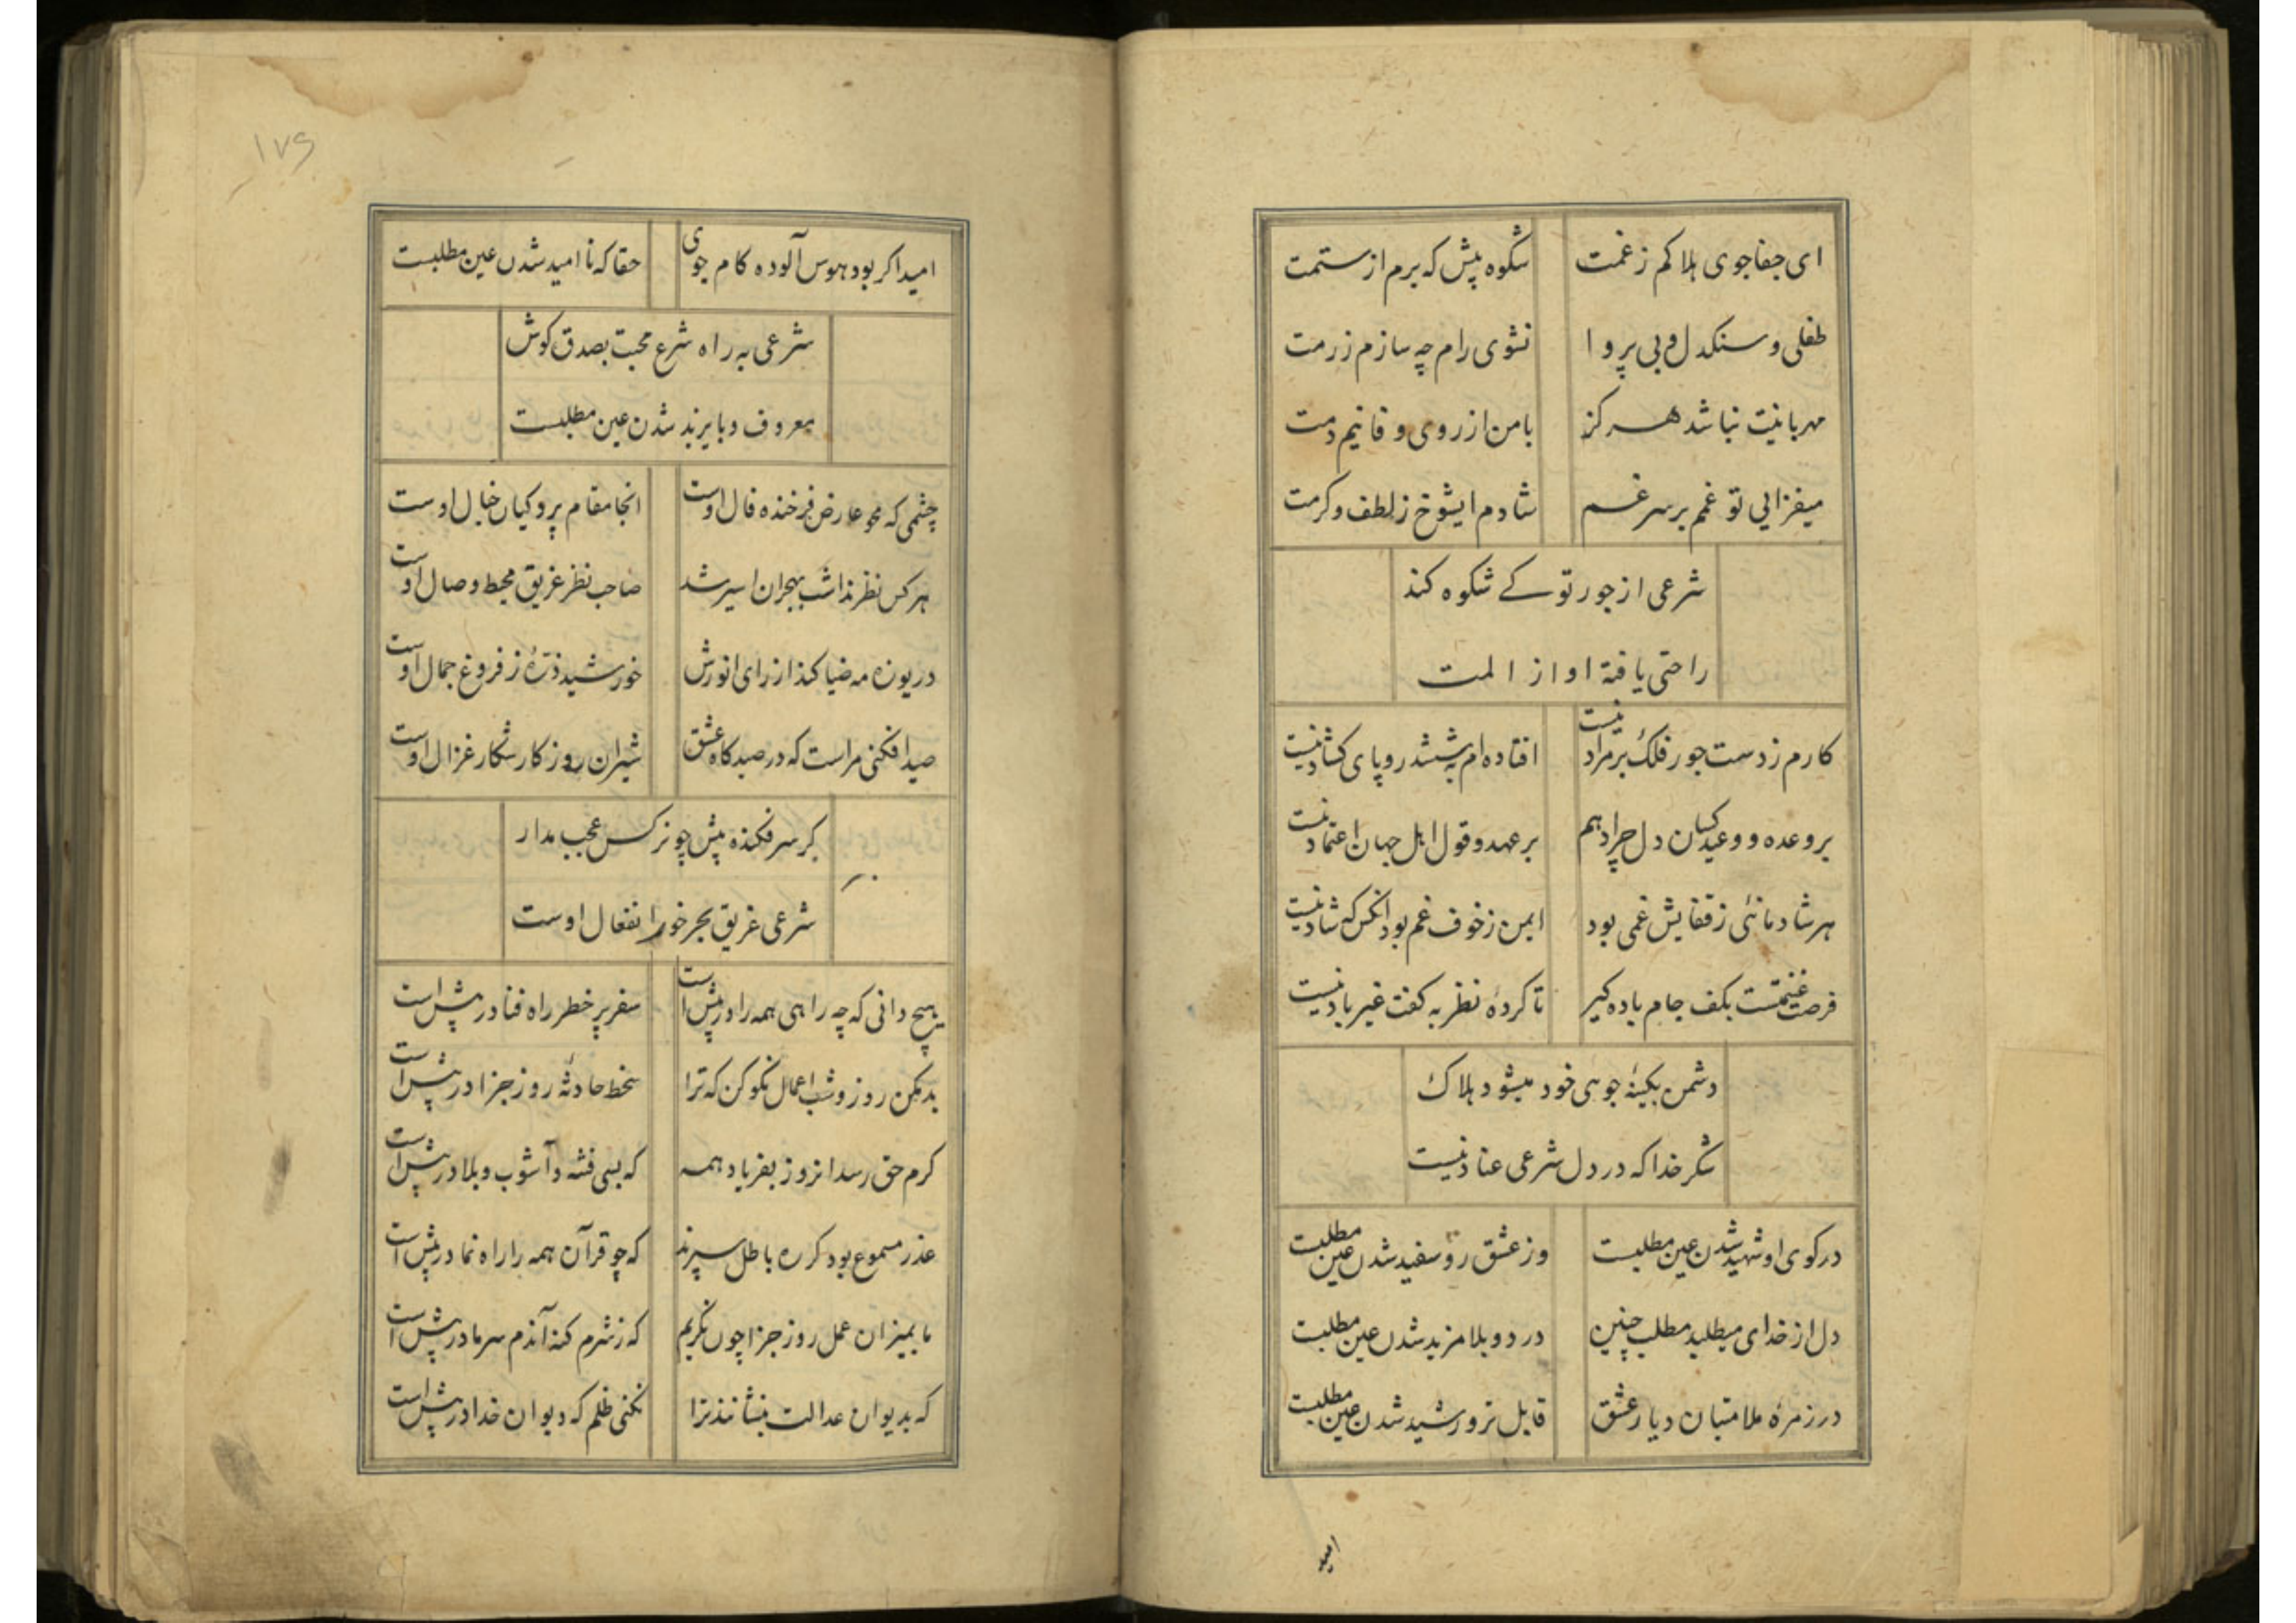 ای جفاجوی هلاکم زغمت شکوه پیش که برم از ستمت
طفلی و سنکدل و بی پروا نشوی رام چه سازم زرمت
مهربانیت نباشد هرکز بامن از روی وفا نیم دمت
میفزایی تو غمم بر سر غم شادم ایشوخ ز لطف و کرمت
شرعی از جور تو کے شکوه کند
راحتی یافته او از المت
کارم ز دست جور فلک بر مراد نیست افتاده ام به ششدر و پای کشاد نیست
بر وعده و وعید کسان دل چرا دهم بر عهد و قول اهل جهان اعتماد نیست
هر شادمانئی ز قفایش غمی بود ایمن ز خوف غم بود انکس که شاد نیست
فرصت غنیمتست بکف جام باده کیر تا کردهٔ نظر به کفت غیر باد نیست
دشمن بکینهٔ جوی خود میشود هلاک
شکر خدا که در دل شرعی عناد نیست
در کوی او شهید شدن عین مطلبست وز عشق رو سفید شدن عین مطلبست
دل از خدای میطلبد مطلب چنین درد و بلا مزید شدن عین مطلبست
در زمرهٔ ملامتیان دیار عشق قابل تر و رشید شدن عین مطلبست
امید
۱۷۶
امید اکر بود هوس آلوده کام جوی حقا که نا امید شدن عین مطلبست
شرعی به راه شرع محبت بصدق کوش
معروف و بایزید شدن عین مطلبست
چشمی که محو عارض فرخنده فال اوست انجا مقام پروکیان خیال اوست
هرکس نظر نداشت بهجران اسیر شد صاحب نظر غریق محیط وصال اوست
دریوزه مه ضیا کند از رای انورش خورشید ذرهٔ ز فروغ جمال اوست
صید افکنی مراست که در صیدکاه عشق شیران روزکار شکار غزال اوست
کر سر فکنده پیش چو نرکس عجب مدار
شرعی غریق بحر خور انفعال اوست
هیچ دانی که چه راهی همه را در پیش است سفر پر خطر راه فنا در پیش است
بد مکن روز و شب اعمال نکو کن که ترا سخط حادثه روز جزا در پیش است
کرم حق رسد انروز بفریاد همه که بسی فتنه و آشوب و بلا در پیش است
عذر مسموع بود کر ره باطل سپرند که چو قرآن همه را راه نما در پیش است
ما بمیزان عمل روز جزا چون نکریم که ز شرم کنه آندم سر ما در پیش است
که بدیوان عدالت بنشانند ترا نکنی ظلم که دیوان خدا در پیش است